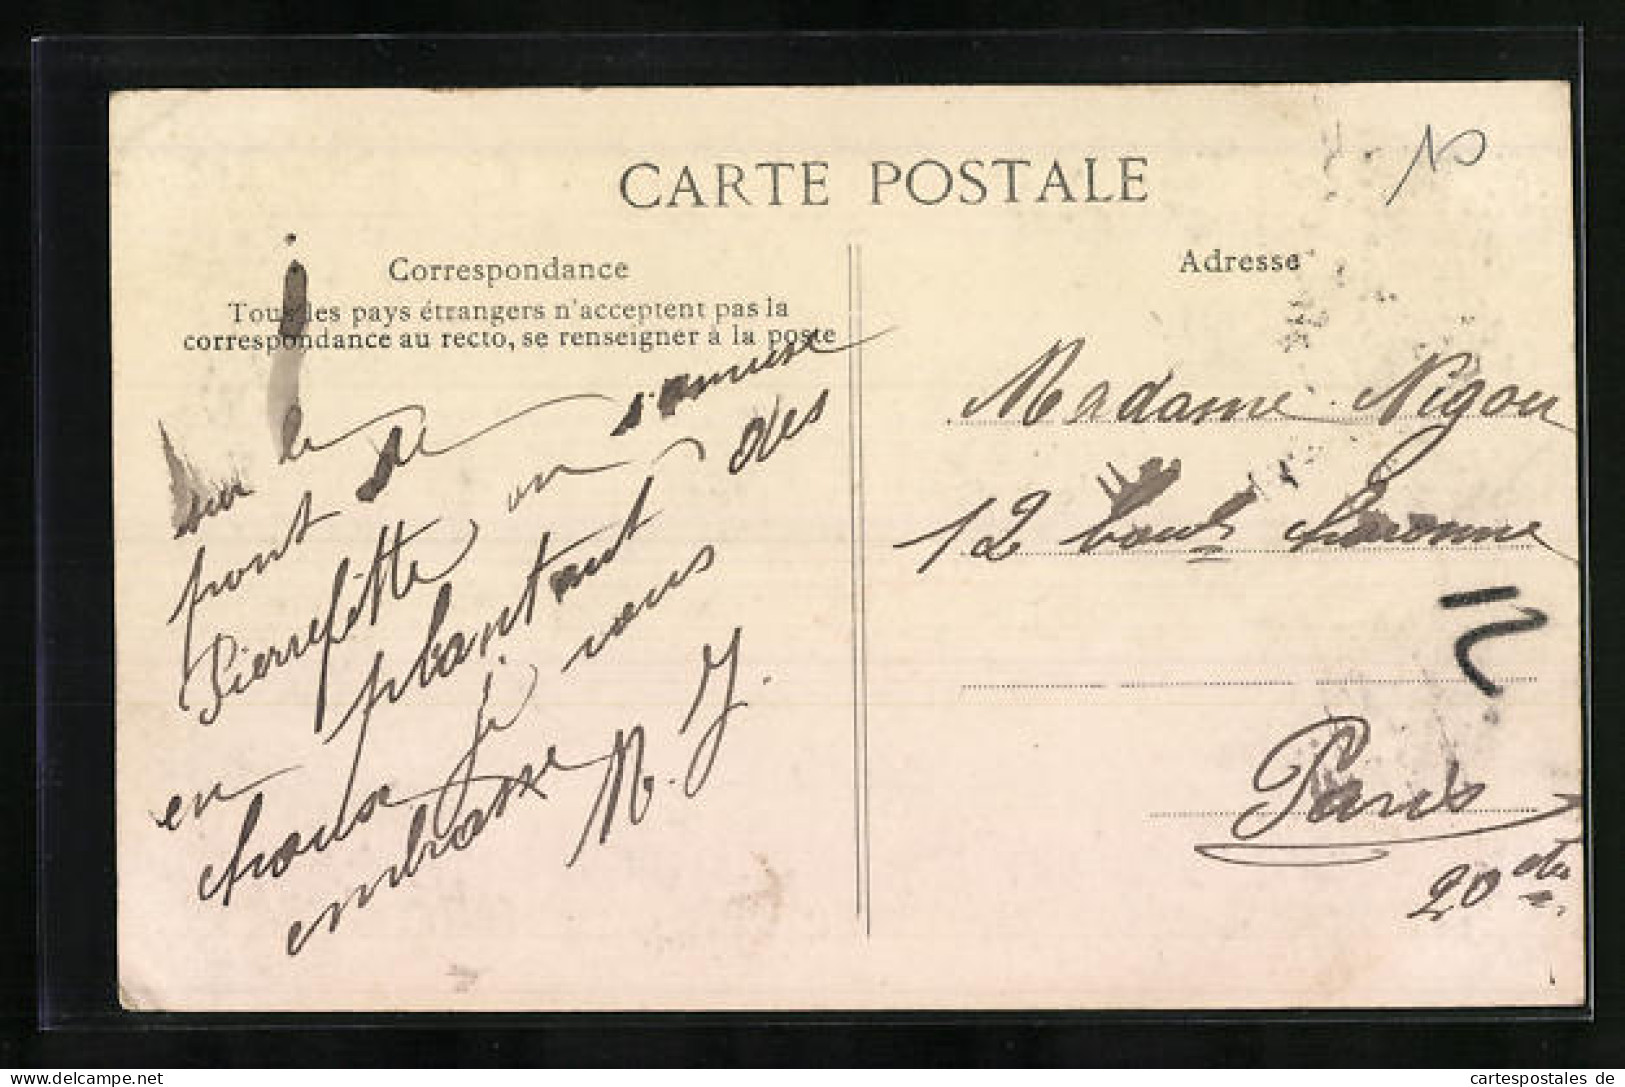 CARTE POSTALE
Correspondance
Tous les pays étrangers n'acceptent pas la
correspondance au recto, se renseigner à la poste
sur le
pont de s'amuse
Pierrefitte on
en plantant des
choux je vous
embrasse M. J.
Adresse
Madame Nigou
12 boul
Paris
20
cartespostales de